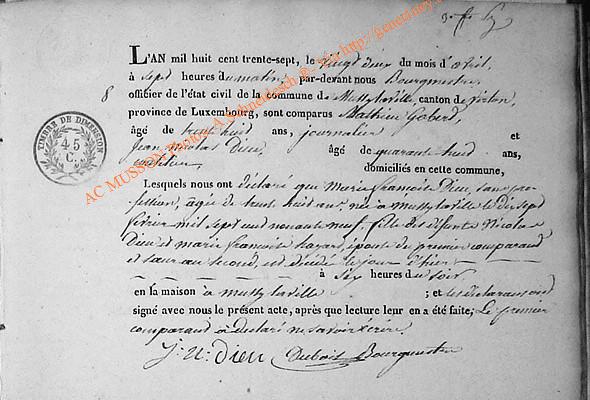 L'AN mil huit cent trente-sept, le vingt deux du mois d'avril
à sept heures du matin, par-devant nous Bourgmestre
8
officier de l'état civil de la commune de Mussy laville, canton de Virton,
province de Luxembourg, sont comparus Mathieu Gobert
âgé de trente huit ans, journalier et
Jean nicolas Dieu, âgé de quarante huit ans,
domiciliés en cette commune,
TIMBRE DE DIMENSION
45
C.
Lesquels nous ont déclaré que Marie françoise Dieu, sans pro-
fession, agée de trente huit ans, née à mussy laville le dix sept
fevrier mil sept cent nonante neuf, fille des defunts Nicolas
Dieu et marie françoise hazard, épouse du premier comparand
et sœur au second, est décédé le jour d'hier
à six heures du soir
en la maison à mussy laville ; et les declarans ont
signé avec nous le présent acte, après que lecture leur en a été faite; Le premier
comparand a déclaré ne savoir écrire.
J: N: Dieu Dubois Bourgmestre
AC MUSSON Photos A. Schneidesch http://geneaney